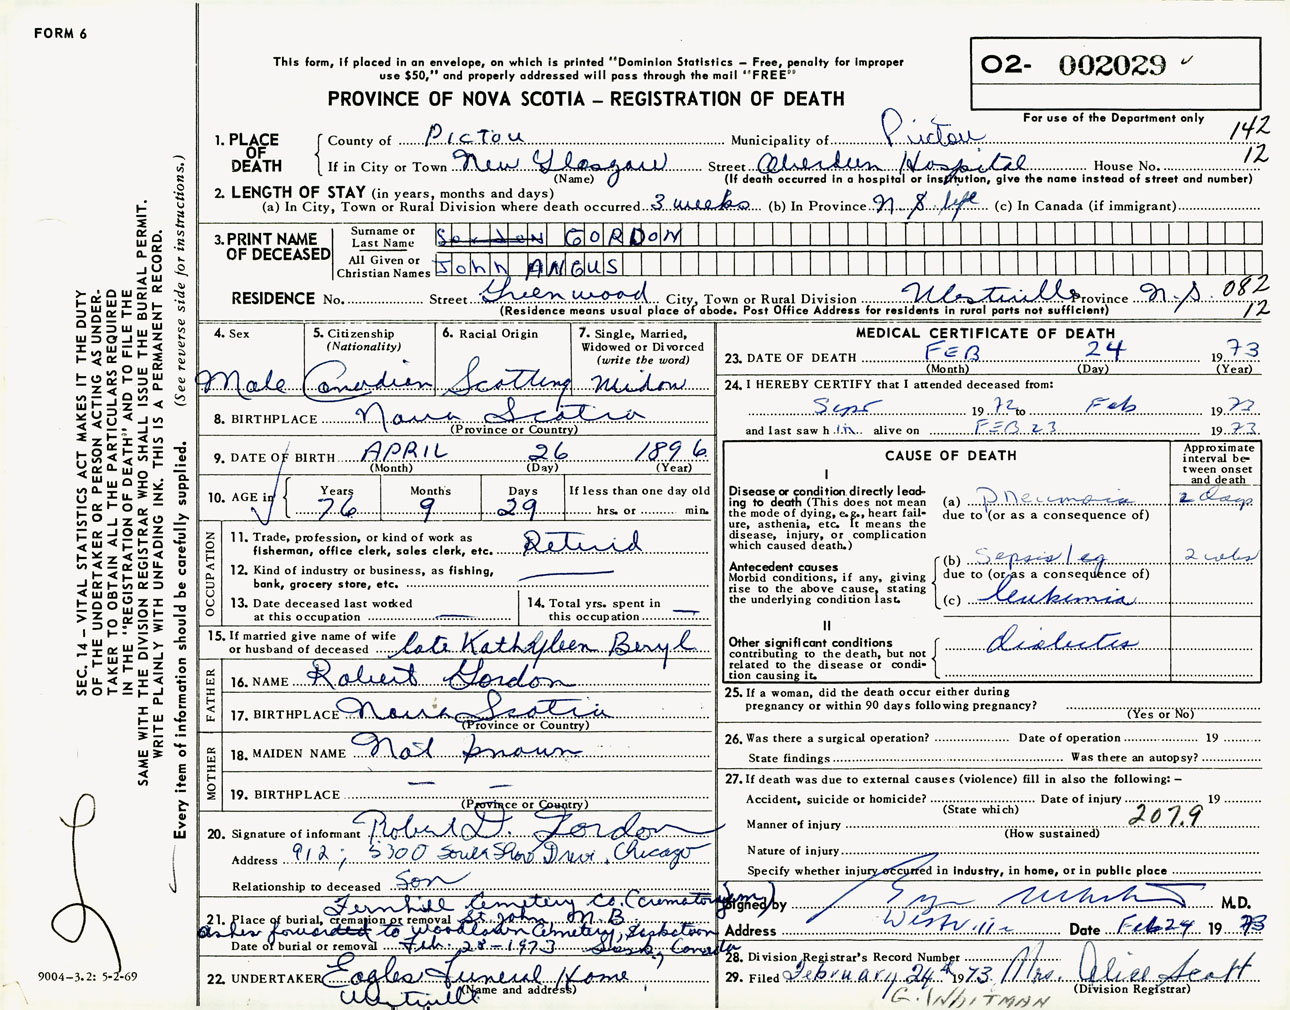 FORM 6
This form, if placed in an envelope, on which is printed "Dominion Statistics – Free, penalty for improper
use $50," and properly addressed will pass through the mail "FREE"
O2- 002029
PROVINCE OF NOVA SCOTIA – REGISTRATION OF DEATH
For use of the Department only
142
12
1. PLACE OF DEATH
County of Pictou Municipality of Pictou
If in City or Town New Glasgow Street Aberdeen Hospital House No.
(Name) (If death occurred in a hospital or institution, give the name instead of street and number)
2. LENGTH OF STAY (in years, months and days)
(a) In City, Town or Rural Division where death occurred 3 weeks (b) In Province N S life (c) In Canada (if immigrant)
3. PRINT NAME OF DECEASED
Surname or Last Name Gordon GORDON
All Given or Christian Names John ANGUS
RESIDENCE No. Street Greenwood City, Town or Rural Division Westville Province N.S. 082
(Residence means usual place of abode. Post Office Address for residents in rural parts not sufficient) 12
4. Sex
Male
5. Citizenship
(Nationality)
Canadian
6. Racial Origin
Scottish
7. Single, Married,
Widowed or Divorced
(write the word)
Widow
8. BIRTHPLACE Nova Scotia
(Province or Country)
9. DATE OF BIRTH APRIL 26 1896
(Month) (Day) (Year)
10. AGE in
Years Months Days If less than one day old
76 9 29 hrs. or min.
OCCUPATION
11. Trade, profession, or kind of work as
fisherman, office clerk, sales clerk, etc. Retired
12. Kind of industry or business, as fishing,
bank, grocery store, etc. —
13. Date deceased last worked
at this occupation —
14. Total yrs. spent in
this occupation —
15. If married give name of wife
or husband of deceased late Kathyleen Beryl
FATHER
16. NAME Robert Gordon
17. BIRTHPLACE Nova Scotia
(Province or Country)
MOTHER
18. MAIDEN NAME Not known
19. BIRTHPLACE — —
(Province or Country)
20. Signature of informant Robert D. Gordon
Address 912, 5300 South Shore Drive, Chicago
Relationship to deceased Son
Fernhill Cemetery Co. (Crematorium)
21. Place of burial, cremation or removal St. John, N.B
ashes forwarded to Woodlawn Cemetery, Saskatoon
Date of burial or removal Feb. 28-1973 Sask, Canada
22. UNDERTAKER Eagles Funeral Home
(Name and address)
Westville
MEDICAL CERTIFICATE OF DEATH
23. DATE OF DEATH FEB 24 1973
(Month) (Day) (Year)
24. I HEREBY CERTIFY that I attended deceased from:
Sept 1972 to Feb 1973
and last saw him alive on FEB 23 1973
CAUSE OF DEATH
Approximate
interval be-
tween onset
and death
I
Disease or condition directly lead-
ing to death (This does not mean
the mode of dying, e.g., heart fail-
ure, asthenia, etc. It means the
disease, injury, or complication
which caused death.)
(a) Pneumonia 2 days
due to (or as a consequence of)
Antecedent causes
Morbid conditions, if any, giving
rise to the above cause, stating
the underlying condition last.
(b) Sepsis leg 2 wks
due to (or as a consequence of)
(c) leukemia
II
Other significant conditions
contributing to the death, but not
related to the disease or condi-
tion causing it.
diabetes
25. If a woman, did the death occur either during
pregnancy or within 90 days following pregnancy?
(Yes or No)
26. Was there a surgical operation? Date of operation 19
State findings Was there an autopsy?
27. If death was due to external causes (violence) fill in also the following: –
Accident, suicide or homicide? Date of injury 19
(State which) 207.9
Manner of injury
(How sustained)
Nature of injury
Specify whether injury occurred in Industry, in home, or in public place
Signed by M.D.
Address Westville Date Feb 24 19 73
28. Division Registrar's Record Number
29. Filed February 24th 1973 Mrs. Alice Scott
(Division Registrar)
G. WHITMAN
SEC. 14 – VITAL STATISTICS ACT MAKES IT THE DUTY
OF THE UNDERTAKER OR PERSON ACTING AS UNDER-
TAKER TO OBTAIN ALL THE PARTICULARS REQUIRED
IN THE "REGISTRATION OF DEATH" AND TO FILE THE
SAME WITH THE DIVISION REGISTRAR WHO SHALL ISSUE THE BURIAL PERMIT.
WRITE PLAINLY WITH UNFADING INK. THIS IS A PERMANENT RECORD.
Every item of information should be carefully supplied. (See reverse side for instructions.)
9004-3.2: 5-2-69